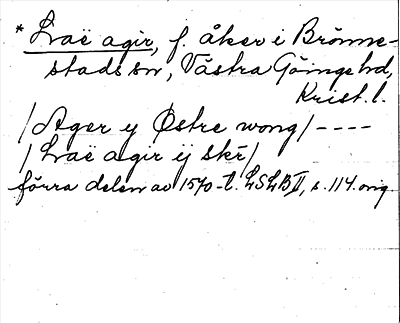 * Lraë agir, f. åker i Brönne-
stads sn, Västra Göinge hd,
Krist. l.
/Ager ij Østre wong/ ----
/Lraë agir ij skr/
förra delen av 1570-t. LSLB II, s. 114. orig.